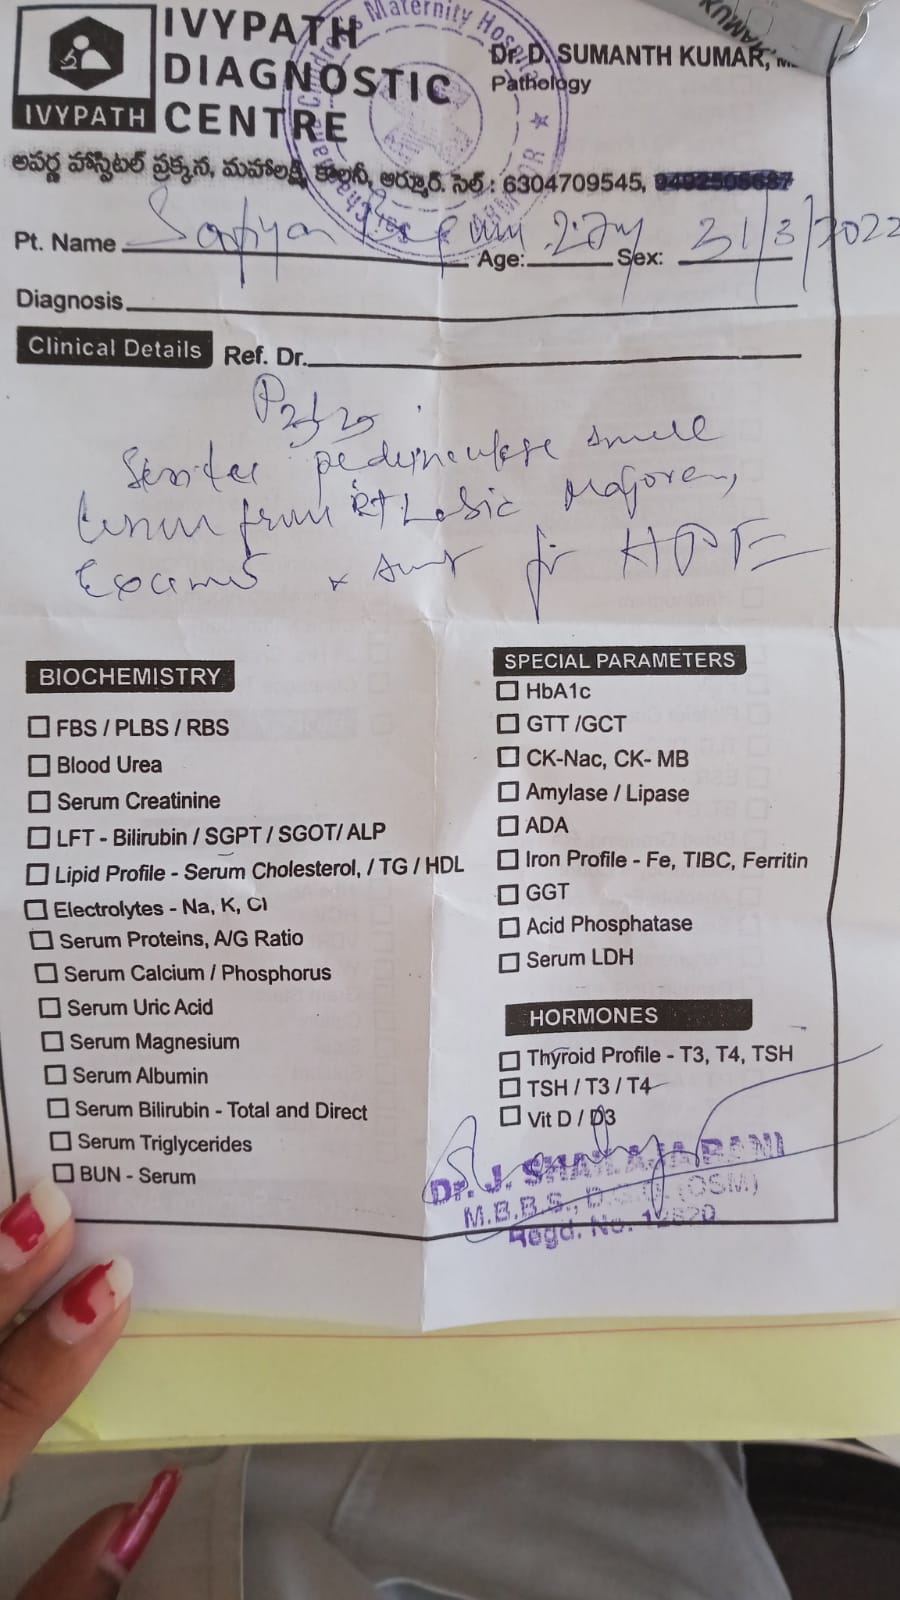 IVYPATH
DIAGNOSTIC
CENTRE
IVYPATH
Maternity
Dr. D. SUMANTH KUMAR,
Pathology
అపర్ణ హాస్పిటల్ ప్రక్కన, మహాలక్ష్మి కాలనీ, ఆర్మూర్. సెల్ : 6304709545,
Pt. Name Age: Sex: 31/3/2022
Diagnosis
Clinical Details Ref. Dr.
small
from Rt
for HPE
BIOCHEMISTRY
FBS / PLBS / RBS
Blood Urea
Serum Creatinine
LFT - Bilirubin / SGPT / SGOT/ ALP
Lipid Profile - Serum Cholesterol, / TG / HDL
Electrolytes - Na, K, Cl
Serum Proteins, A/G Ratio
Serum Calcium / Phosphorus
Serum Uric Acid
Serum Magnesium
Serum Albumin
Serum Bilirubin - Total and Direct
Serum Triglycerides
BUN - Serum
SPECIAL PARAMETERS
HbA1c
GTT /GCT
CK-Nac, CK- MB
Amylase / Lipase
ADA
Iron Profile - Fe, TIBC, Ferritin
GGT
Acid Phosphatase
Serum LDH
HORMONES
Thyroid Profile - T3, T4, TSH
TSH / T3 / T4
Vit D / D3
Dr. J. SHAILAJA RANI
M.B.B.S., (OSM)
Regd. No.